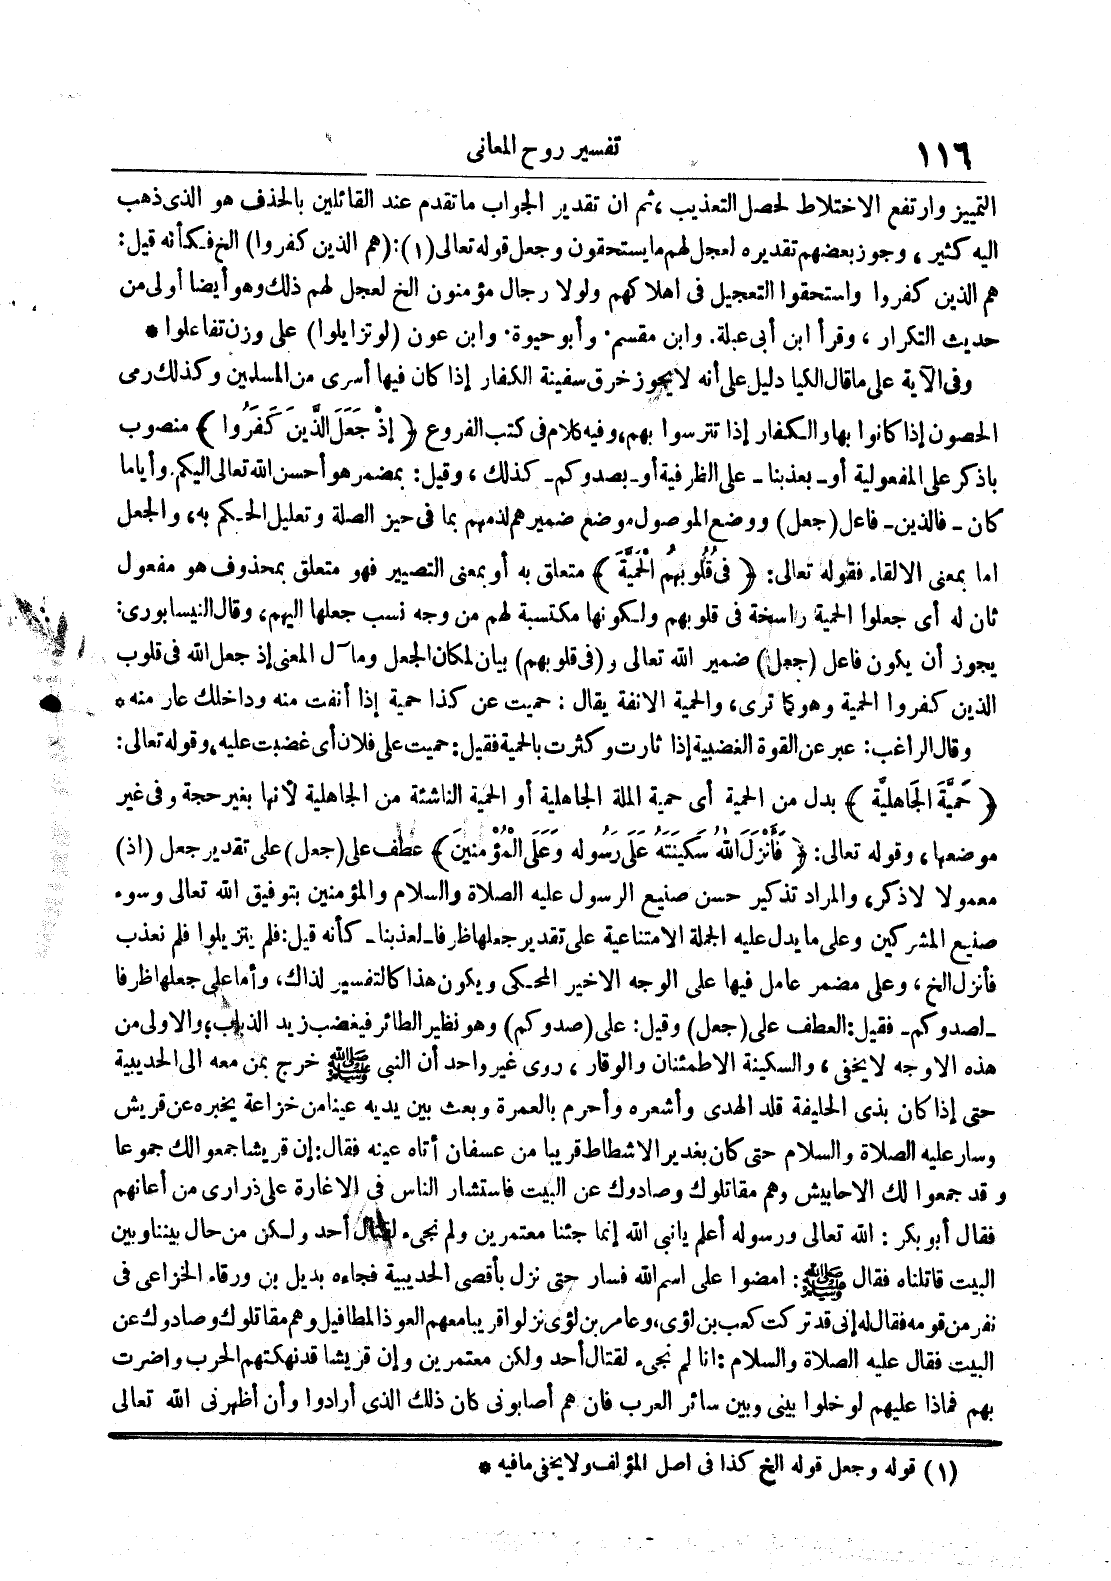 ١١٦
تفسير روح المعانى
التمييز وارتفع الاختلاط لحصل التعذيب ، ثم ان تقدير الجواب ما تقدم عند القائلين بالحذف هو الذى ذهب
اليه كثير ، وجوز بعضهم تقديره لعجل لهم ما يستحقون وجعل قوله تعالى (١): (هم الذين كفروا) الخ فكأنه قيل:
هم الذين كفروا واستحقوا التعجيل فى اهلاكهم ولولا رجال مؤمنون الخ لعجل لهم ذلك وهو أيضا أولى من
حديث التكرار ، وقرأ ابن أبى عبلة. وابن مقسم. وأبو حيوة. وابن عون (لو تزايلوا) على وزن تفاعلوا *
وفى الآية على ما قال الكيا دليل على أنه لا يجوز خرق سفينة الكفار إذا كان فيها أسرى من المسلمين وكذلك رمى
الحصون إذا كانوا بها والكفار إذا تترسوا بهم، وفيه كلام فى كتب الفروع ﴿ إِذْ جَعَلَ الَّذِينَ كَفَرُوا ﴾ منصوب
باذكر على المفعولية أو ـ بعذبنا ـ على الظرفية أو ـ بصدوكم ـ كذلك ، وقيل: بمضمر هو أحسن الله تعالى اليكم. وأياما
كان ـ فالذين ـ فاعل (جعل) ووضع الموصول موضع ضميرهم لذمهم بما فى حيز الصلة وتعليل الحكم به، والجعل
اما بمعنى الالقاء فقوله تعالى: ﴿ فِى قُلُوبِهِمُ الْحَمِيَّةَ ﴾ متعلق به أو بمعنى التصيير فهو متعلق بمحذوف هو مفعول
ثان له أى جعلوا الحمية راسخة فى قلوبهم ولكونها مكتسبة لهم من وجه نسب جعلها اليهم، وقال النيسابورى:
يجوز أن يكون فاعل (جعل) ضمير الله تعالى و (فى قلوبهم) بيان لمكان الجعل ومآل المعنى إذ جعل الله فى قلوب
الذين كفروا الحمية وهو كما ترى، والحمية الانفة يقال : حميت عن كذا حمية إذا أنفت منه وداخلك عار منه *
وقال الراغب: عبر عن القوة الغضبية إذا ثارت وكثرت بالحمية فقيل: حميت على فلان أى غضبت عليه، وقوله تعالى:
﴿ حَمِيَّةَ الْجَاهِلِيَّةِ ﴾ بدل من الحمية أى حمية الملة الجاهلية أو الحمية الناشئة من الجاهلية لأنها بغير حجة وفى غير
موضعها، وقوله تعالى: ﴿ فَأَنْزَلَ اللهُ سَكِينَتَهُ عَلَى رَسُولِهِ وَعَلَى الْمُؤْمِنِينَ ﴾ عطف على (جعل) على تقدير جعل (اذ)
معمولا لاذكر، والمراد تذكير حسن صنيع الرسول عليه الصلاة والسلام والمؤمنين بتوفيق الله تعالى وسوء
صنيع المشركين وعلى ما يدل عليه الجملة الامتناعية على تقدير جعلها ظرفا ـ لعذبنا ـ كأنه قيل: فلم يتزيلوا فلم نعذب
فأنزل الخ ، وعلى مضمر عامل فيها على الوجه الاخير المحكى ويكون هذا كالتفسير لذاك، وأما على جعلها ظرفا
ـ لصدوكم ـ فقيل: العطف على (جعل) وقيل: على (صدوكم) وهو نظير الطائر فيغضب زيد الذباب، والاولى من
هذه الاوجه لا يخفى ، والسكينة الاطمئنان والوقار ، روى غير واحد أن النبى ﷺ خرج بمن معه الى الحديبية
حتى إذا كان بذى الحليفة قلد الهدى وأشعره وأحرم بالعمرة وبعث بين يديه عينا من خزاعة يخبره عن قريش
وسار عليه الصلاة والسلام حتى كان بغدير الاشطاط قريبا من عسفان أتاه عينه فقال: إن قريشا جمعوا لك جموعا
وقد جمعوا لك الاحابيش وهم مقاتلوك وصادوك عن البيت فاستشار الناس فى الاغارة على ذرارى من أعانهم
فقال أبو بكر : الله تعالى ورسوله أعلم يا نبى الله إنما جئنا معتمرين ولم نجىء لقتال أحد ولكن من حال بيننا وبين
البيت قاتلناه فقال ﷺ : امضوا على اسم الله فسار حتى نزل بأقصى الحديبية فجاءه بديل بن ورقاء الخزاعى فى
نفر من قومه فقال له إنى قد تركت كعب بن لؤى، وعامر بن لؤى نزلوا قريبا معهم العوذ المطافيل وهم مقاتلوك وصادوك عن
البيت فقال عليه الصلاة والسلام : انا لم نجىء لقتال أحد ولكن معتمرين وإن قريشا قد نهكتهم الحرب واضرت
بهم فماذا عليهم لو خلوا بينى وبين سائر العرب فان هم أصابونى كان ذلك الذى أرادوا وأن أظهرنى الله تعالى
(١) قوله وجعل قوله الخ كذا فى اصل المؤلف ولا يخفى ما فيه *